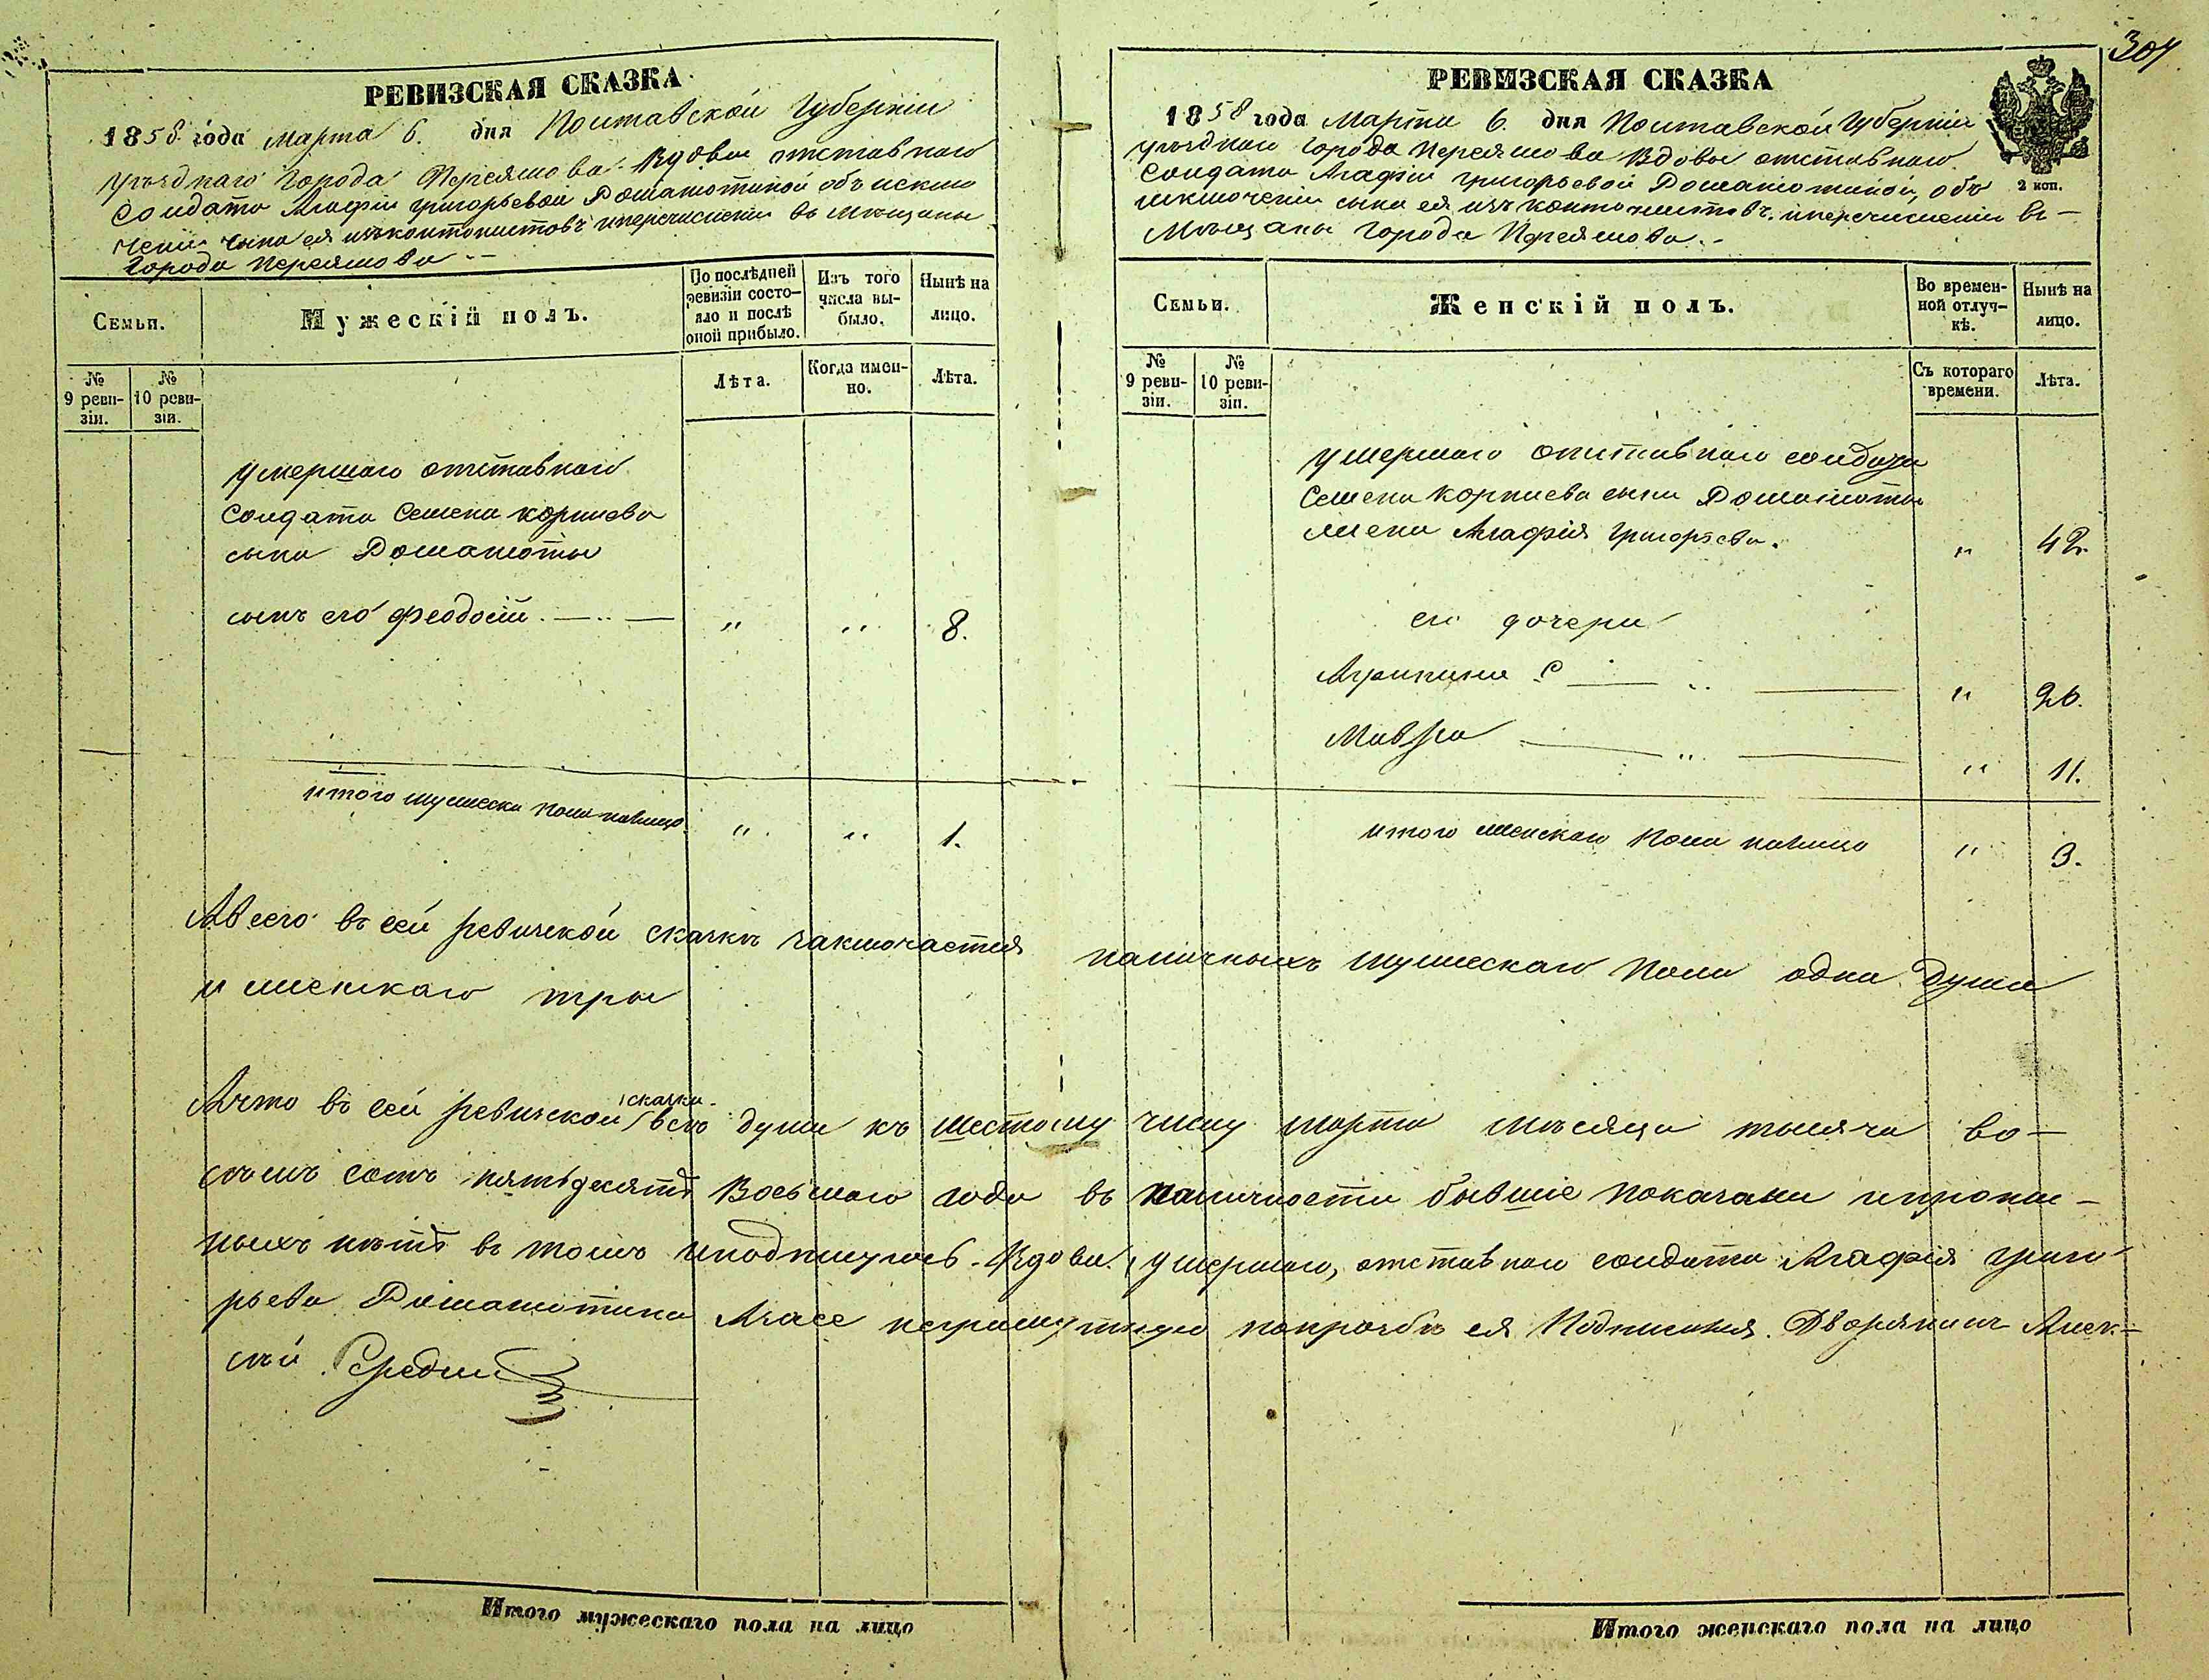 304
РЕВИЗСКАЯ СКАЗКА
1858 года марта 6. дня Полтавской Губерніи
уѣзднаго города Переяслова Вдовы отставнаго
Солдата Агафіи Григорьевой Домашотиной объ исклю
ченіи сына ея изъ кантонистовъ и перечисленіи въ мѣщаны
города Переяслова
Семьи.
Мужескій полъ.
По послѣдней ревизіи состо-яло и послѣ оной прибыло.
Изъ того числа вы-было.
Нынѣ на лицо.
№ 9 реви-зіи.
№ 10 реви-зіи.
Лѣта.
Когда имен-но.
Лѣта.
умершаго отставнаго
Солдата Семена Корнiева
сына Домашоты
сынъ его Феодосій . — „ — „ „ 8.
итого мужеска пола налицо „ „ 1.
РЕВИЗСКАЯ СКАЗКА
2 коп.
1858 года Марта 6. дня Полтавской Губерніи
уѣзднаго города Переяслова Вдовы отставнаго
Солдата Агафіи Григорьевой Домашотиной, объ
исключеніи сына ея изъ кантонистовъ и перечисленіи въ —
Мѣщаны города Переяслова. -
Семьи.
Женскій полъ.
Во времен-ной отлуч-кѣ.
Нынѣ на лицо.
№ 9 реви-зіи.
№ 10 реви-зіи.
Съ котораго времени.
Лѣта.
умершаго отставнаго солдата
Семена Корнiева сына Домашоты
жена Агафія Григорьева. „ 42.
его дочери
Агрипина — „ — „ 26.
Мавра — „ — „ 11.
итого женскаго пола налицо „ 3.
А всего въ сей ревизской сказкѣ заключается наличныхъ мужескаго пола одна душа
и женскаго тры
А что въ сей ревизской сказки всѣ души къ шестому числу марта мѣсяца тысяча во-
сѣмъ сотъ пятьдесятъ Восьмаго года въ наличности бывшіе показаны и пропис-
ныхъ нѣтъ въ томъ и подпишуюсь Вдова умершаго, отставнаго солдата Агафія Григо
рьева Домашотина А за се неграмотную по прозбѣ ея Подписался Дворянинъ Алек-
сѣй
Итого мужескаго пола на лицо
Итого женскаго пола на лицо